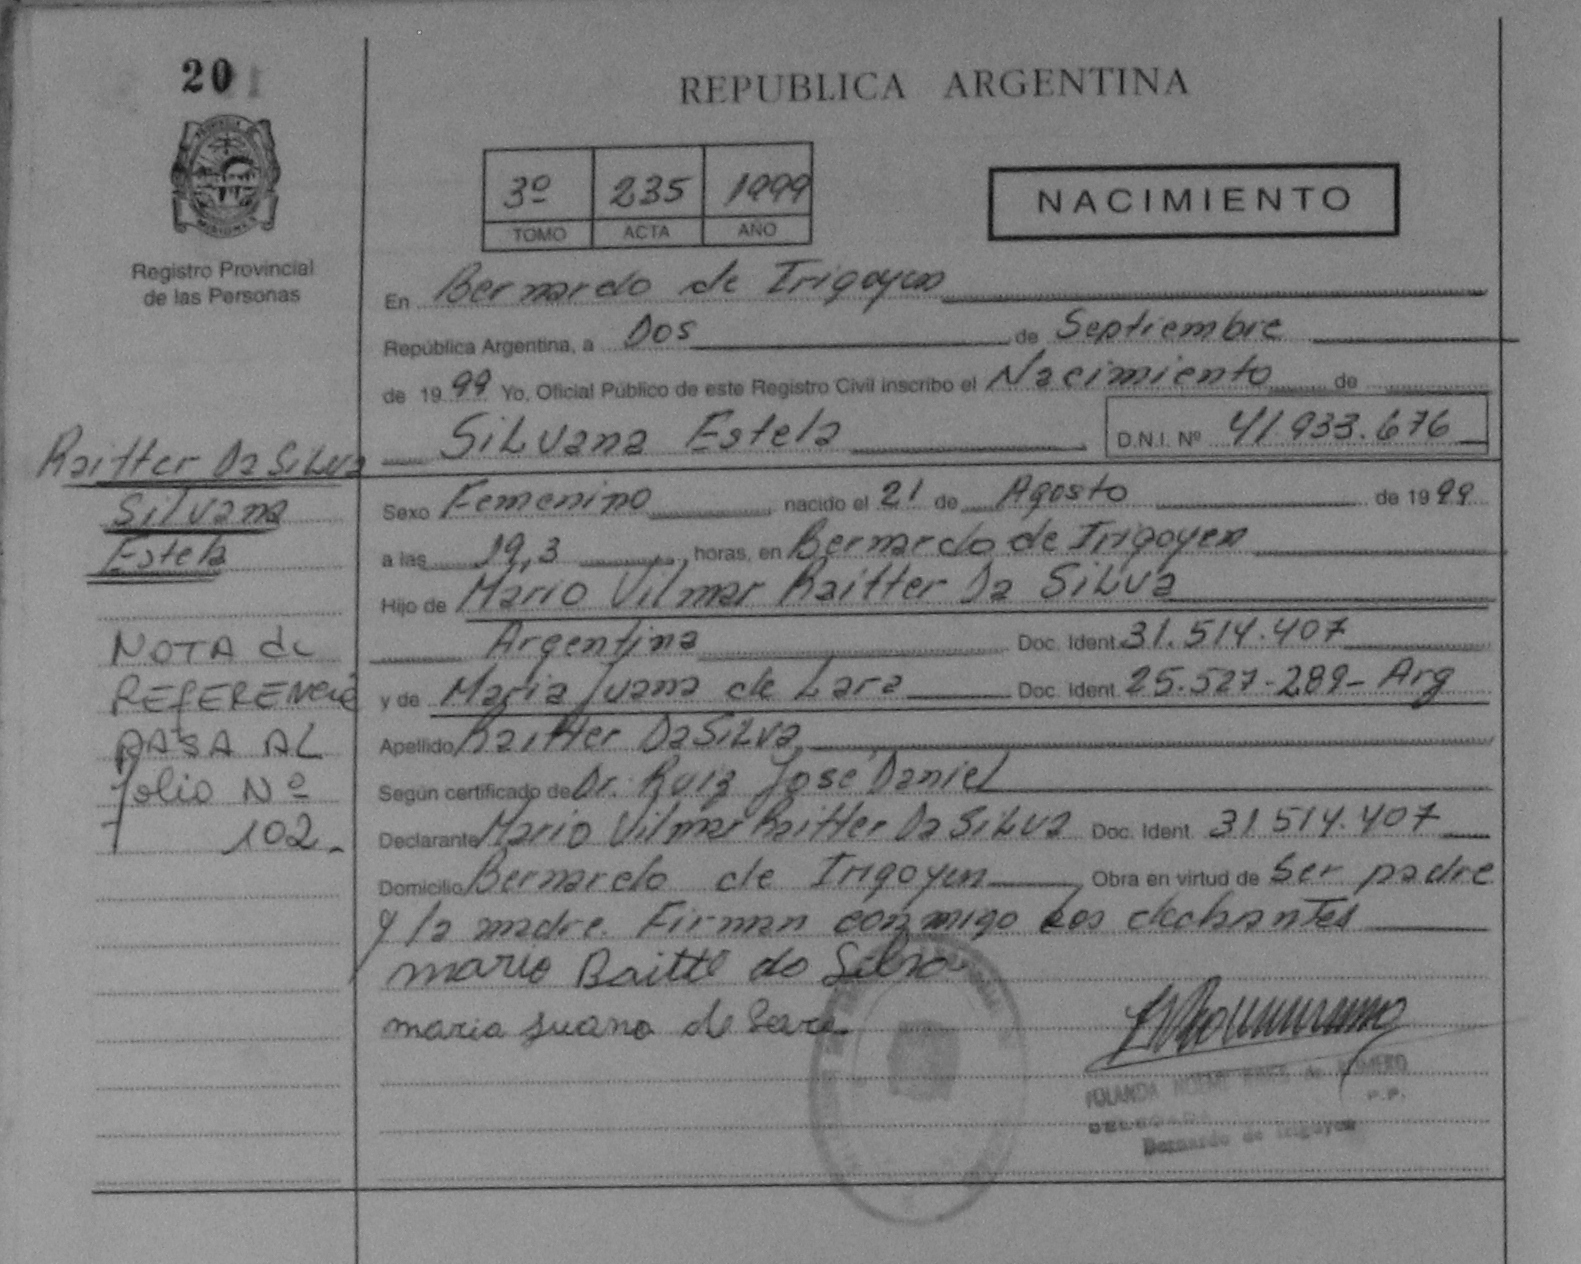 20
REPUBLICA ARGENTINA
3º 235 1999
TOMO ACTA AÑO
NACIMIENTO
Registro Provincial
de las Personas
En Bernardo de Irigoyen
República Argentina, a Dos de Septiembre
de 1999 Yo, Oficial Público de este Registro Civil inscribo el Nacimiento de
Silvana Estela D.N.I. Nº 41.933.676
Raitter Da Silva
Silvana
Estela
Sexo Femenino nacido el 21 de Agosto de 1999
a las 19,3 horas, en Bernardo de Irigoyen
Hijo de Mario Vilmar Raitter Da Silva
Argentina Doc. Ident. 31.514.407
y de Maria Juana de Lara Doc. Ident. 25.527.289- Arg
Apellido Raitter Da Silva
Según certificado de Dr. Ruiz José Daniel
Declarante Mario Vilmar Raitter Da Silva Doc. Ident. 31.514.407
Domicilio Bernardo de Irigoyen Obra en virtud de Ser padre
y la madre. Firman conmigo los
NOTA de
REFERENCIA
PASA AL
folio Nº
102.-
mario Raitte da Silva
maria Juana de Lara
YOLANDA NOEMI de ROMERO
DELEGADA P.P.
Bernardo de Irigoyen